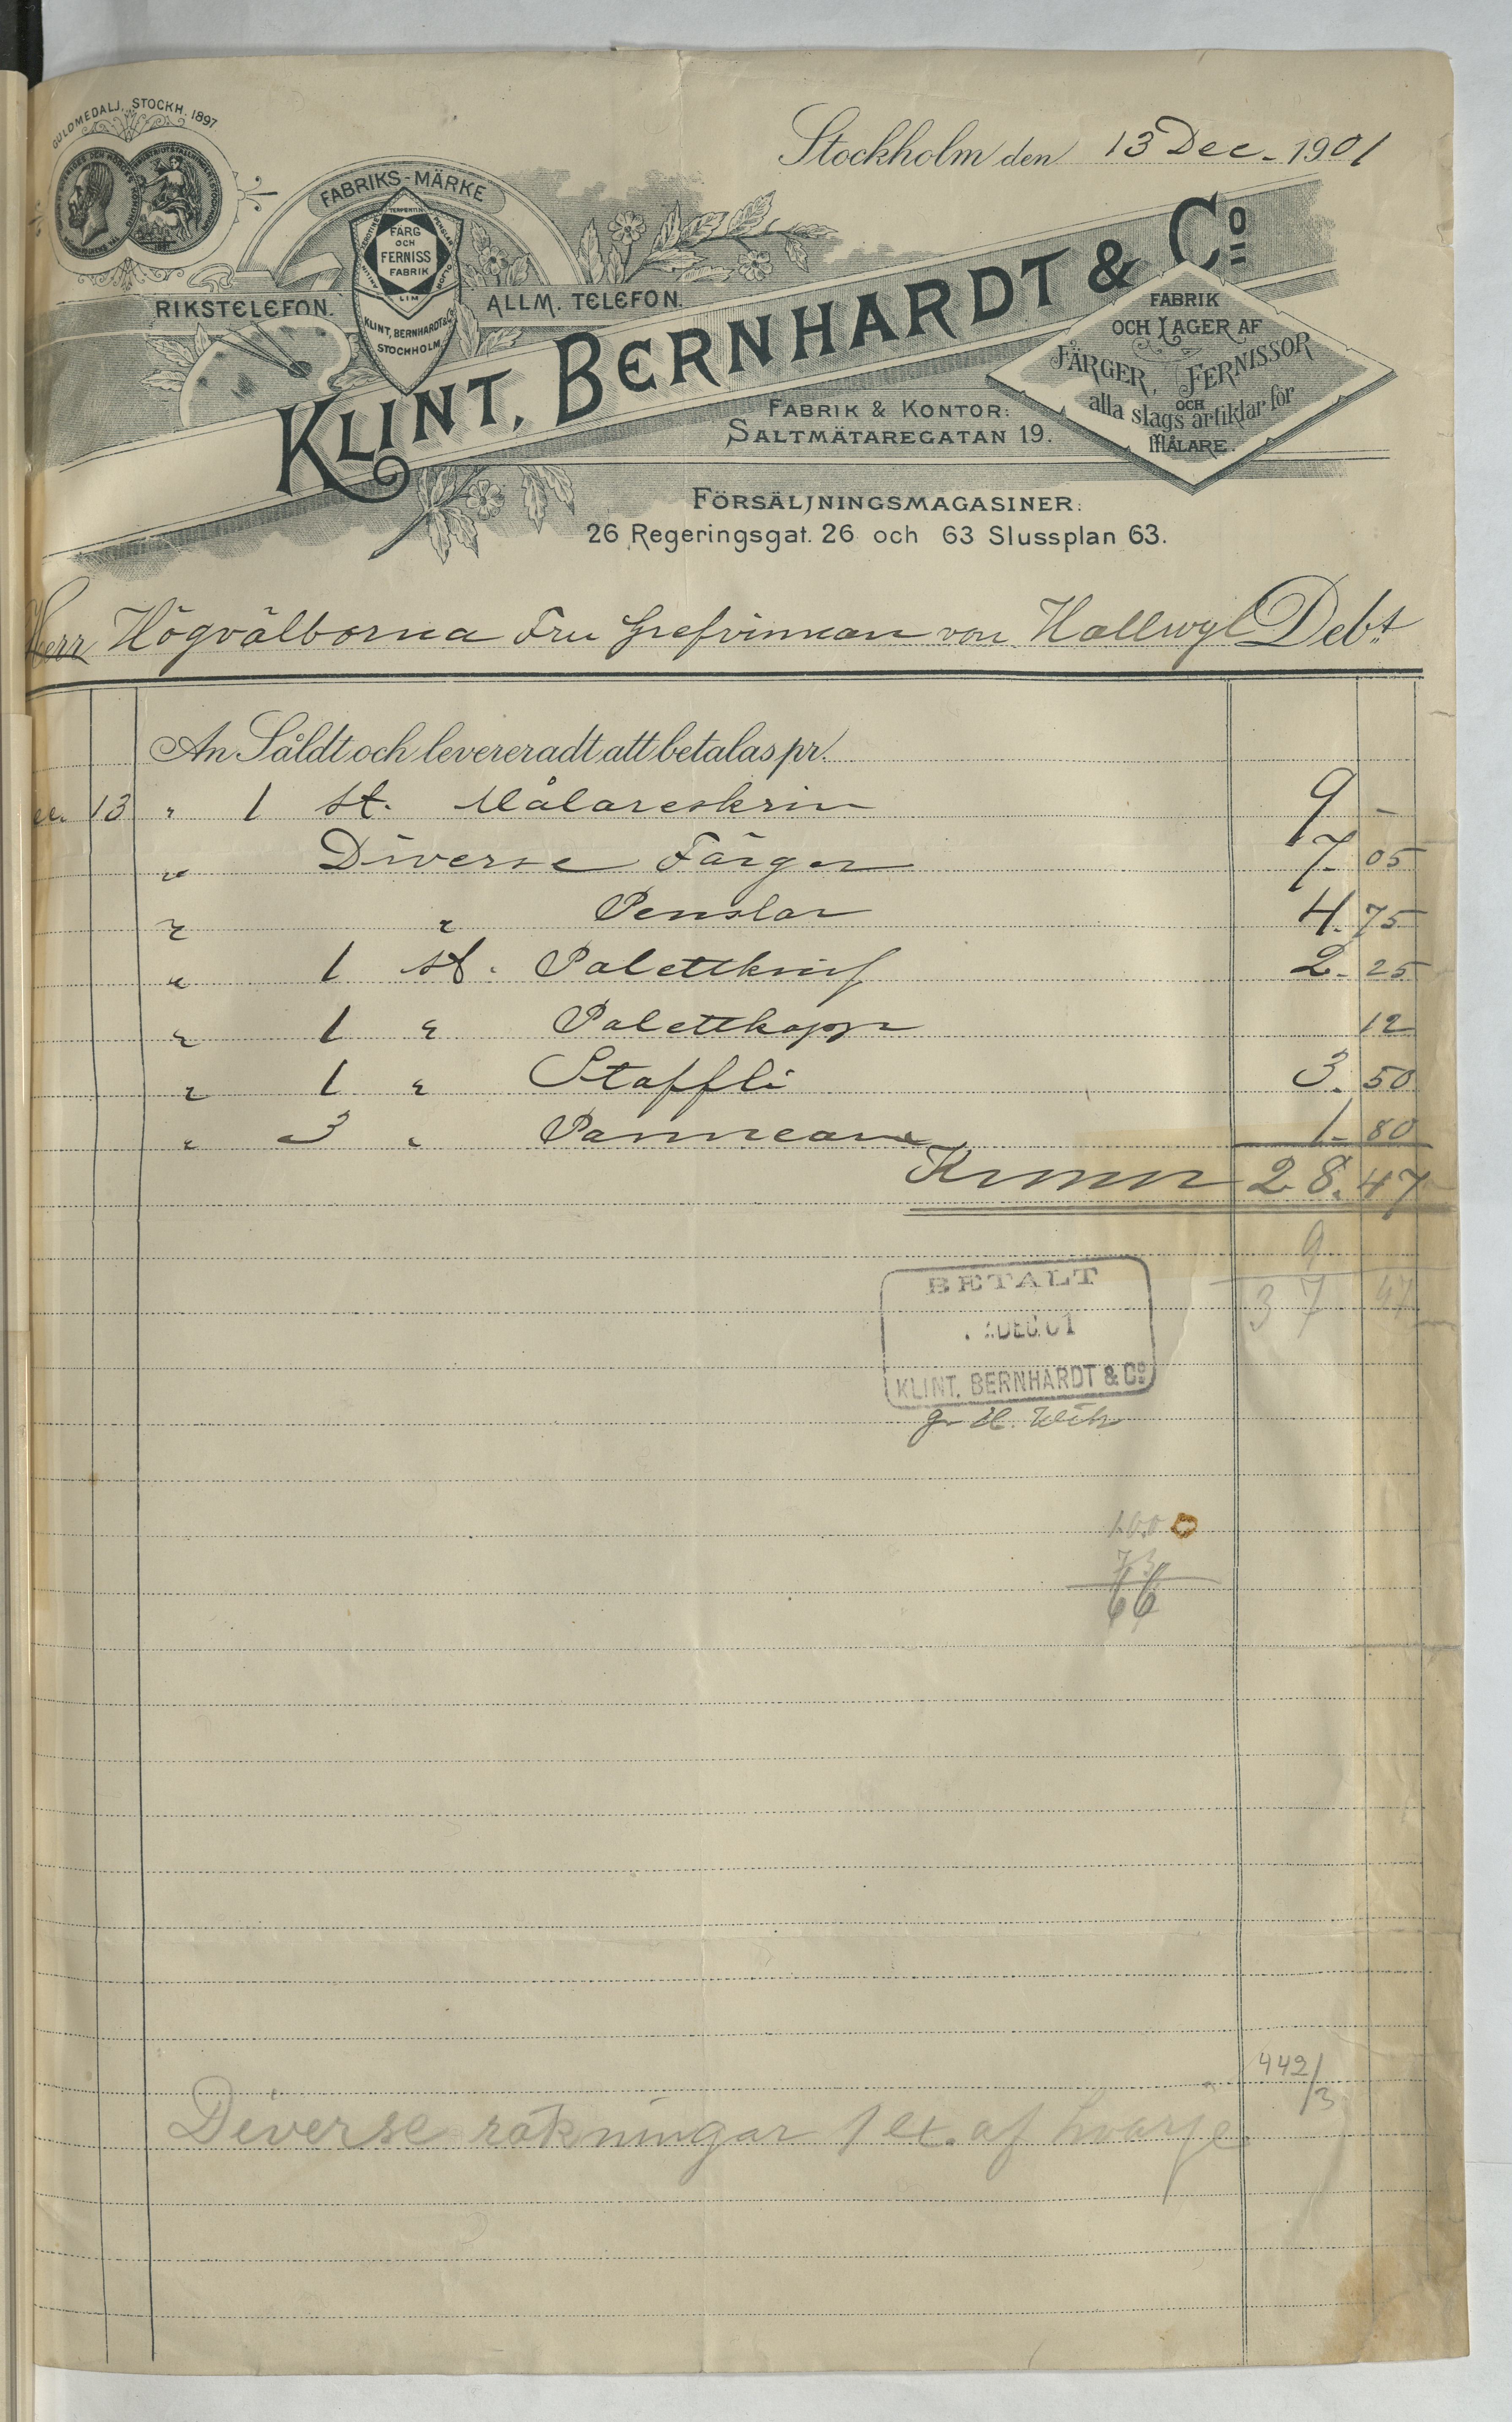 GULDMEDALJ. STOCKH. 1897
Stockholm den 13 Dec. 1901
FABRIKS-MÄRKE
TERPENTIN
FÄRG
OCH
FERNISS
FABRIK
LIM
KLINT, BERNHARDT & Co
STOCKHOLM
RIKSTELEFON.
ALLM. TELEFON.
KLINT, BERNHARDT & Co
FABRIK
OCH LAGER AF
FÄRGER, FERNISSOR
OCH
alla slags artiklar för
MÅLARE.
FABRIK & KONTOR:
SALTMÄTAREGATAN 19.
FÖRSÄLJNINGSMAGASINER:
26 Regeringsgat. 26 och 63 Slussplan 63.
Herr Högvälborna Fru Grefvinnan von Hallwyl Debt
An Såldt och levereradt att betalas pr.
13 " 1 st. Målareskrin 9 -
" Diverse Färger 7. 05
" " Penslar 4. 75
" 1 st. Palettknif 2. 25
" 1 " Palettkopp 12
" 1 " Staffli 3. 50
" 3 " Panneaux 1. 80
Kronor 28. 47
9
37 47
BETALT
DEC 01
KLINT, BERNHARDT & Co
100
66
442/3
Diverse räkningar 1 ex. af hvarje